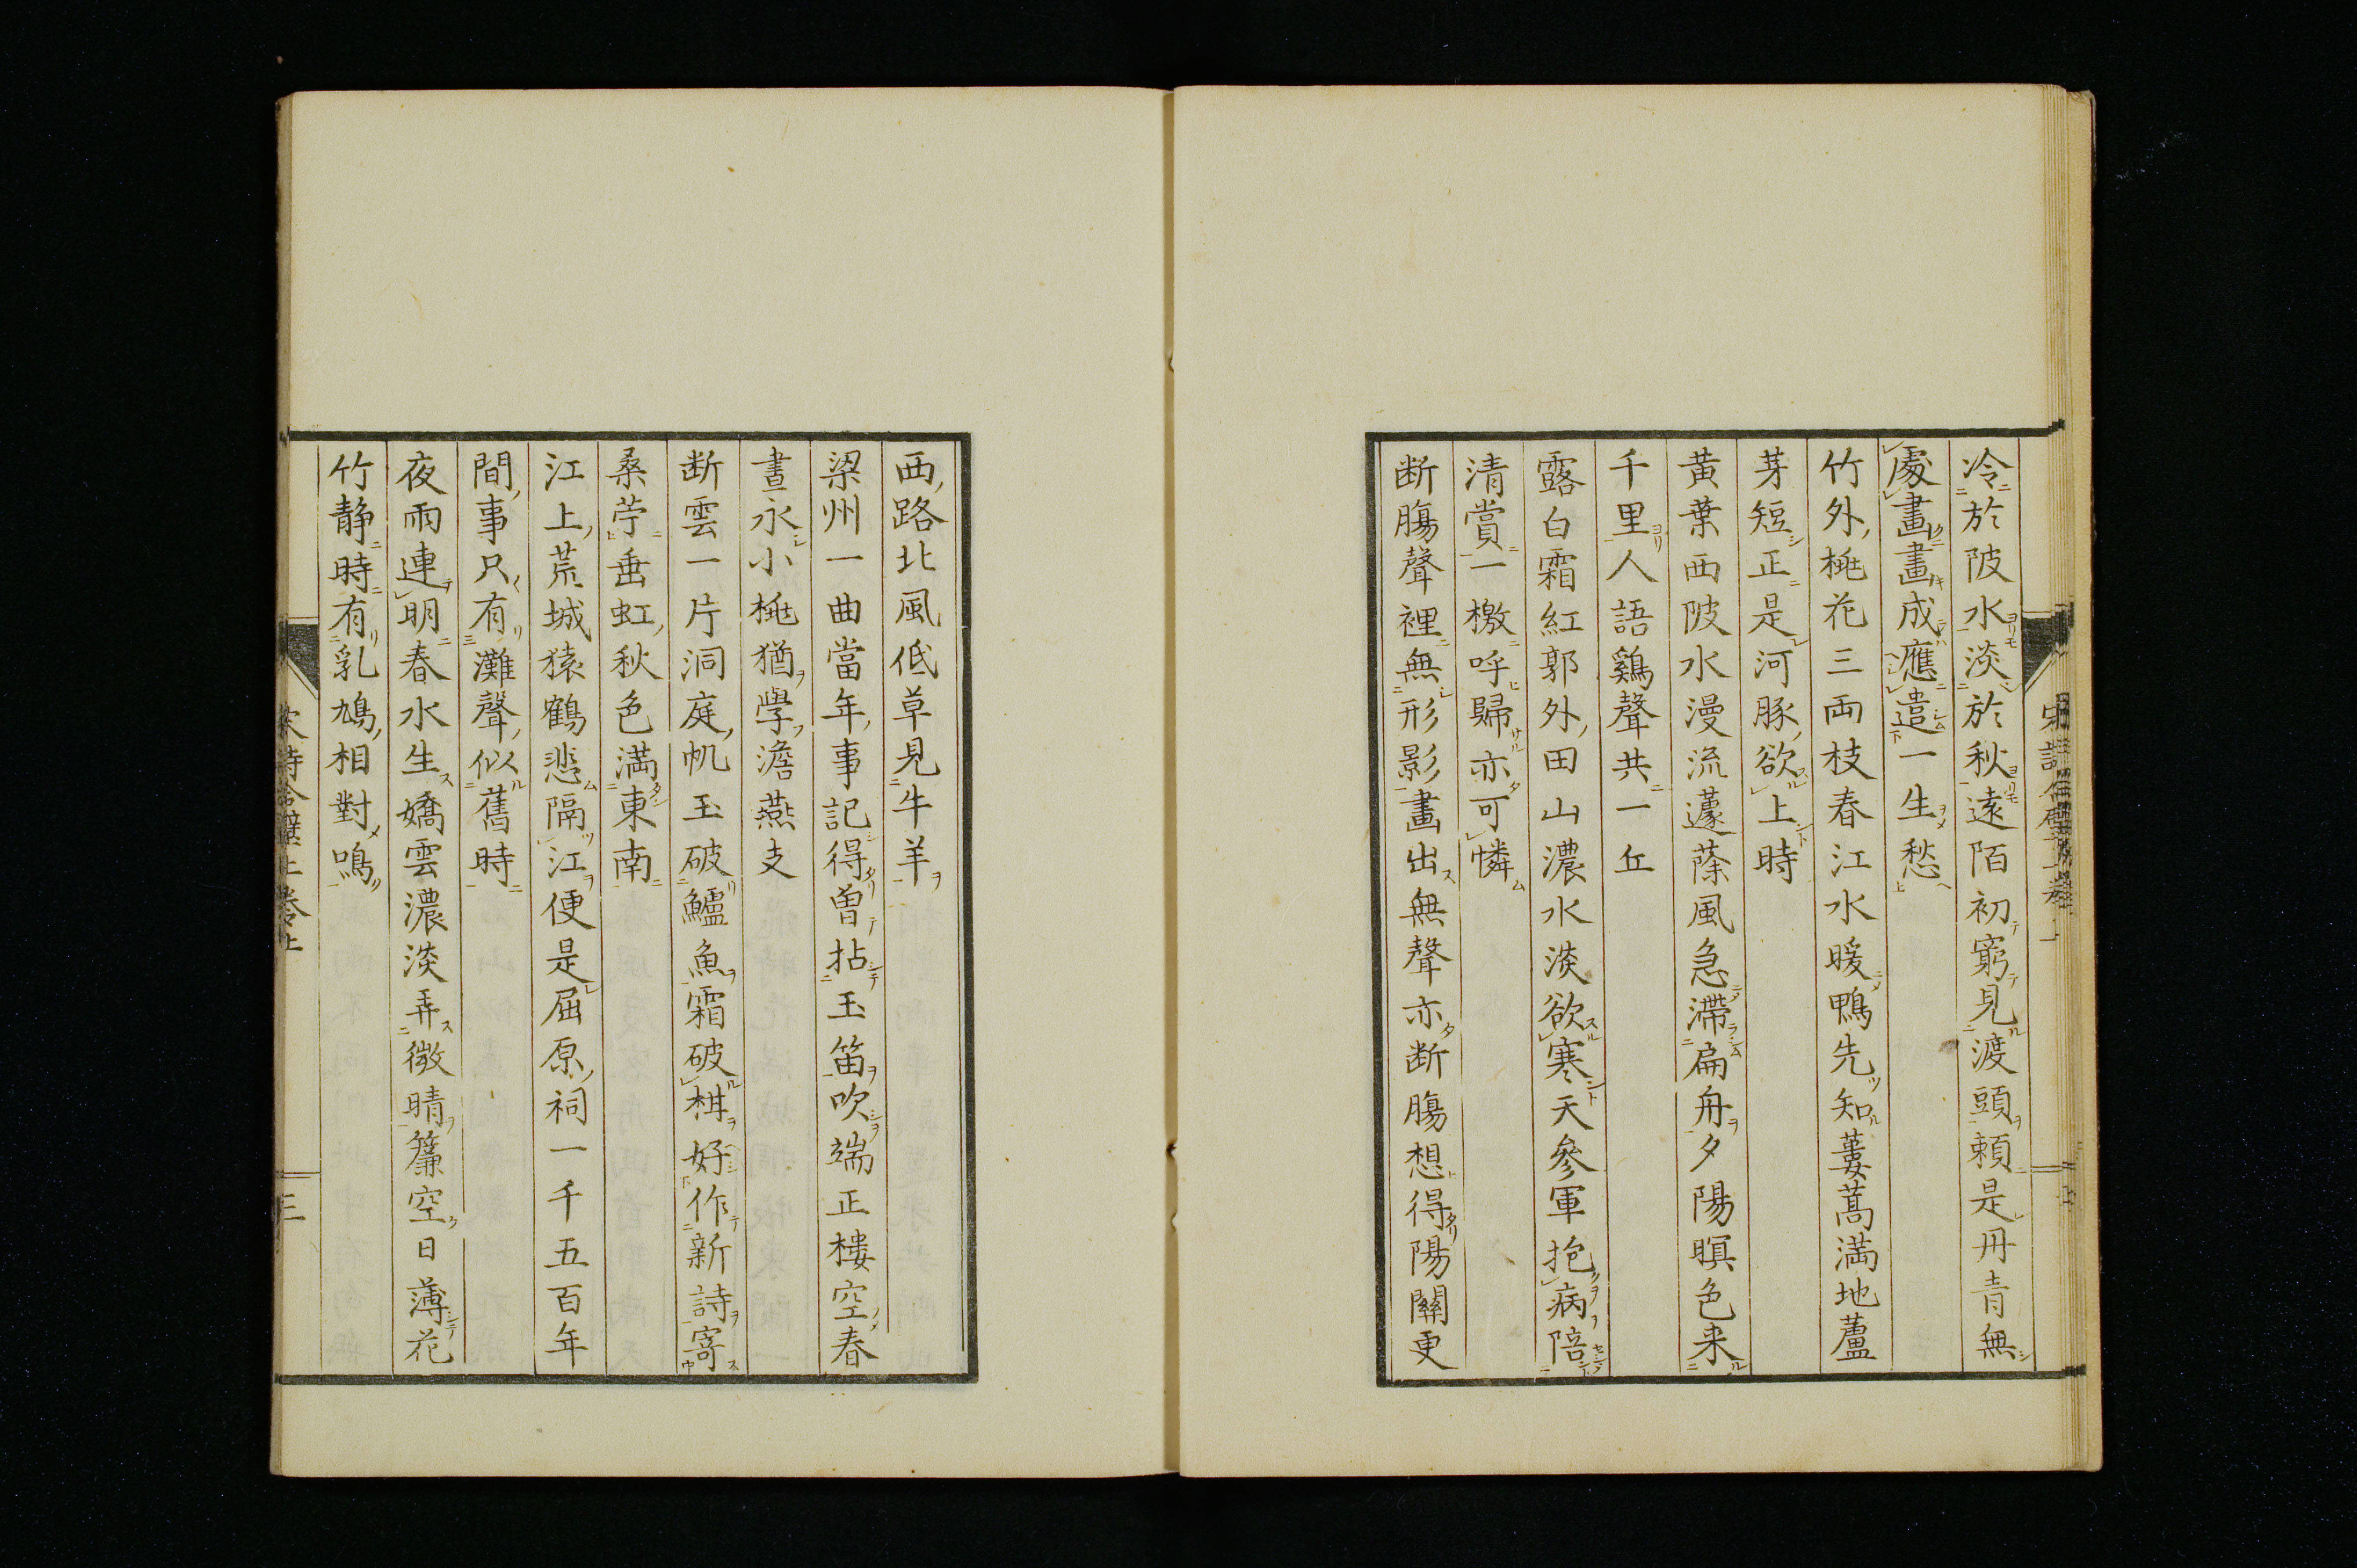 冷於陂水淡於秋遠陌初窮見渡頭賴是丹青無
處畫畫成應遣一生愁
竹外桃花三両枝春江水暖鴨先知蔞蒿満地蘆
芽短正是河豚欲上時
黄葉西陂水漫流籧蒢風急滯扁舟夕陽暝色来
千里人語鷄聲共一丘
露白霜紅郭外田山濃水淡欲寒天參軍抱病陪
清賞一檄呼歸亦可憐
断膓聲裡無形影畫出無聲亦断膓想得陽關更
西路北風低草見牛羊
梁州一曲當年事記得曽拈玉笛吹端正樓空春
晝永小桃猶學澹燕支
断雲一片洞庭帆玉破鱸魚霜破柑好作新詩寄
桑苧垂虹秋色満東南
江上荒城猿鶴悲隔江便是屈原祠一千五百年
間事只有灘聲似舊時
夜雨連明春水生嬌雲濃淡弄微晴簾空日薄花
竹静時有乳鳩相對鳴
三